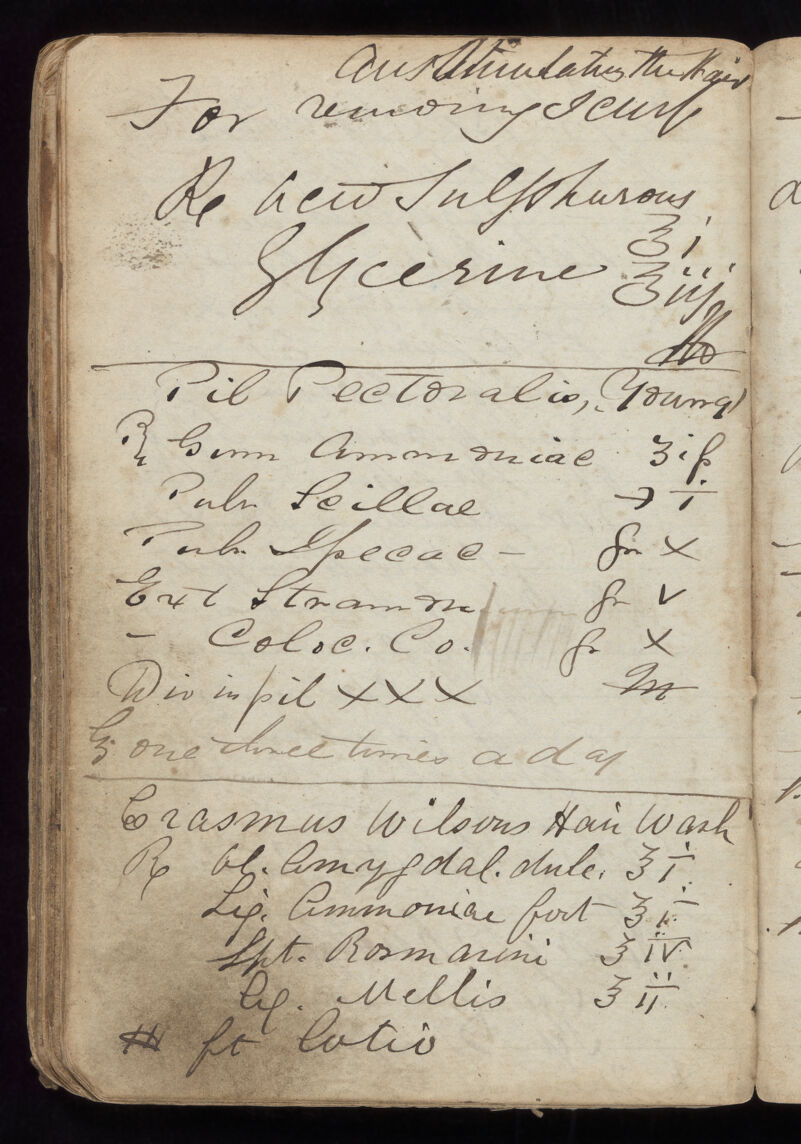 and Stimulating the Hair
For removing Scurf
Rx Acid Sulphurous
℥i
Glycerine ℥iij
M
Pil Pectoralis, Young
Rx Gum Ammoniac ʒiß
Pulv Scillae ℈i
Pulv. Ipecac – gr x
Ext Stramon gr v
– Coloc. Co. gr x
Div in pil xxx M
one three times a day
Erasmus Wilsons Hair Wash
Rx Ol. Amygdal. dulc. ℥i
Liq. Ammoniae fort ℥i
Spt. Rosmarini ℥iv
Aq. Mellis ℥ii
M ft Lotio